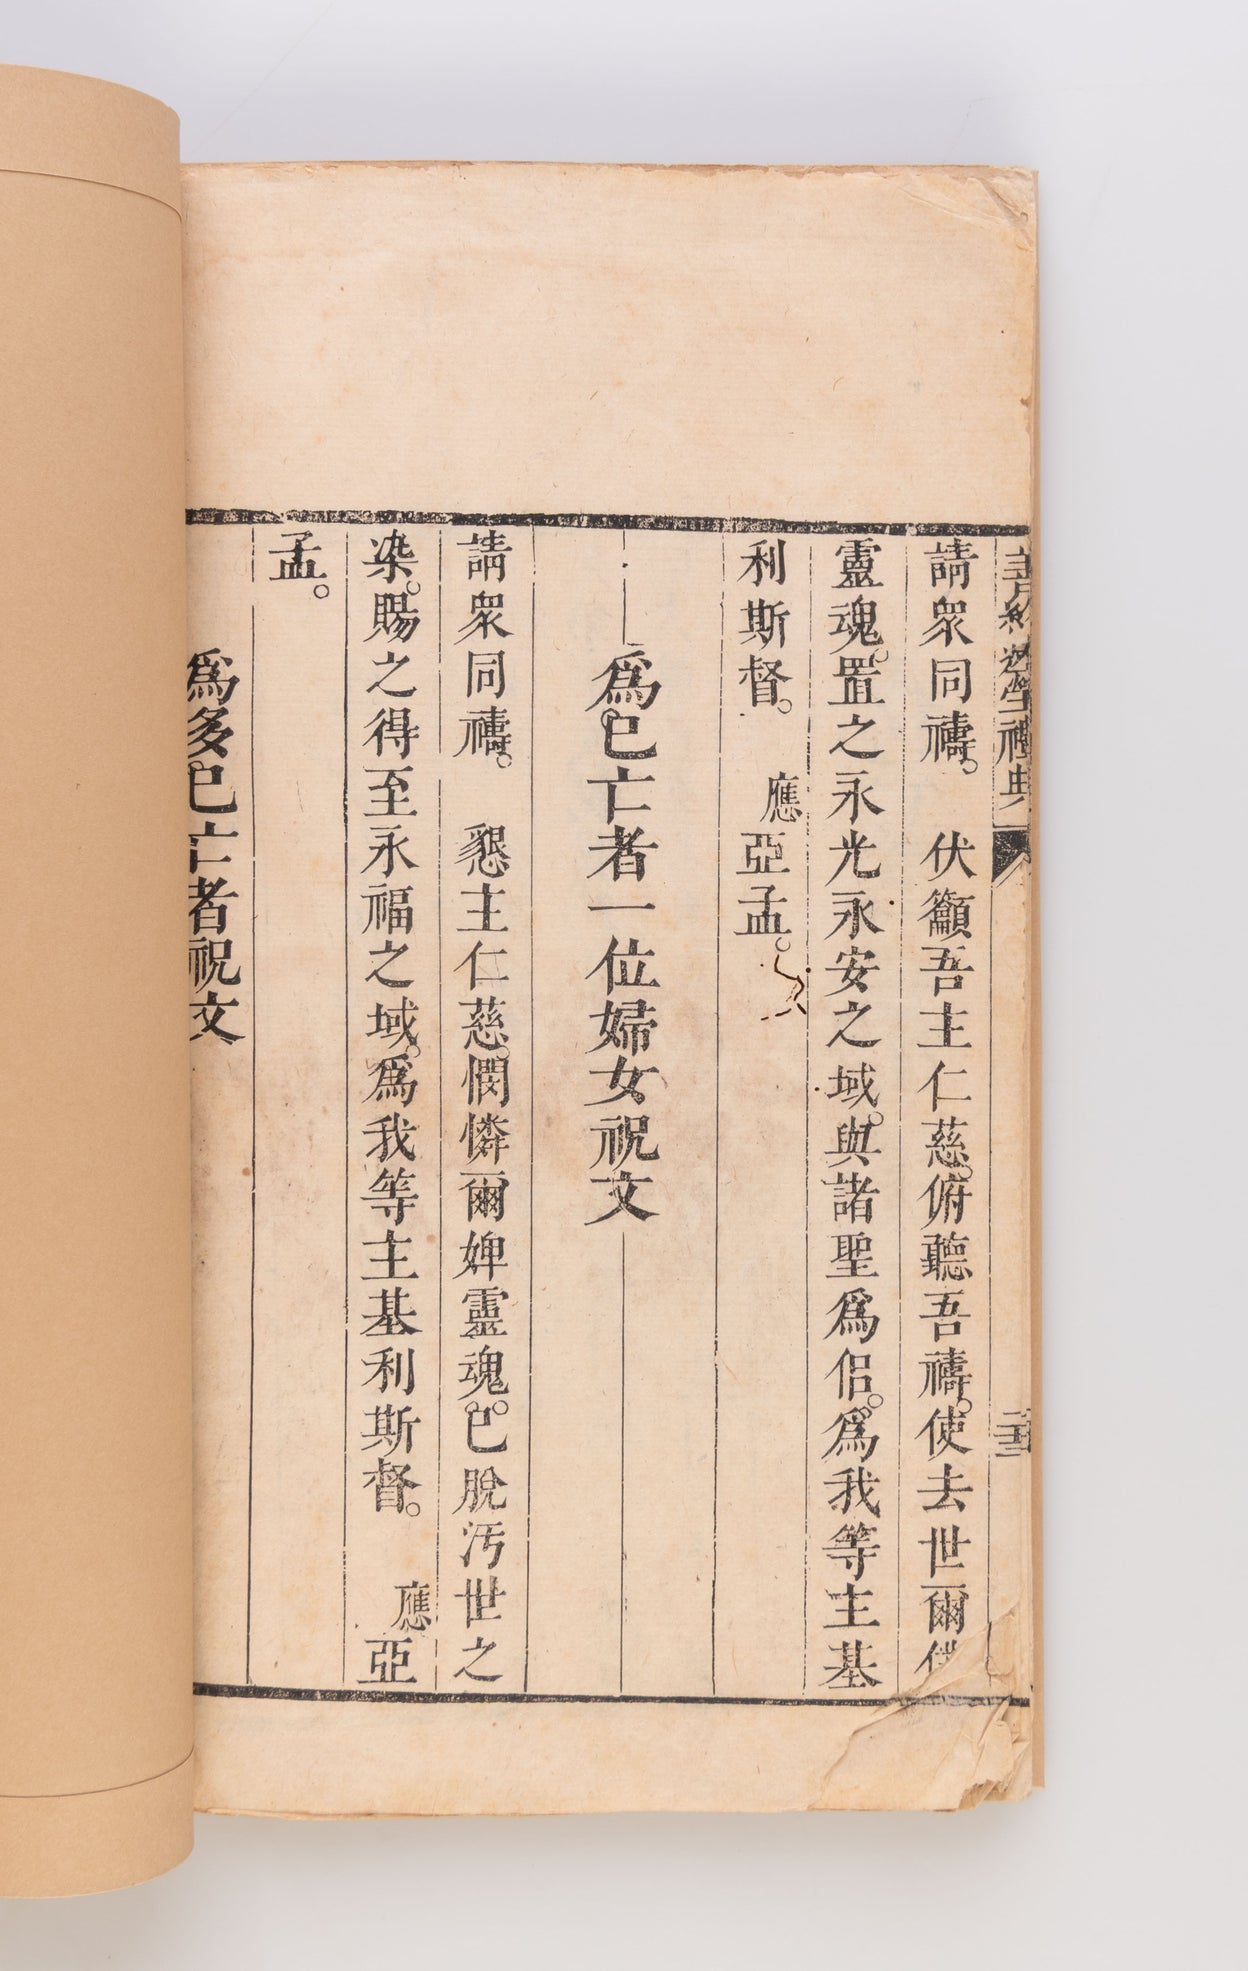 善終塋禮典
請衆同禱。 伏籲吾主仁慈。俯聽吾禱。使去世爾
靈魂。置之永光永安之域。與諸聖爲侶。爲我等主基
利斯督。 應亞孟。
爲已亡者一位婦女祝文
請衆同禱。 懇主仁慈。憫憐爾婢靈魂。已脫汚世之
染。賜之得至永福之域。爲我等主基利斯督。 應亞
孟。
爲多已亡者祝文